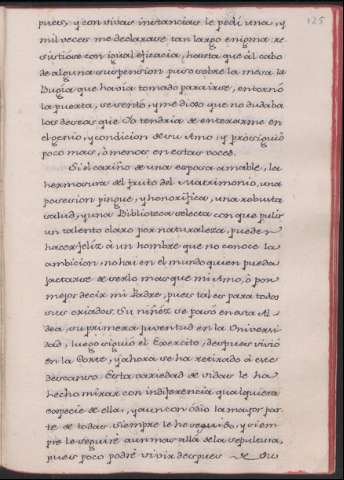 125
pues, y con vivas instancias le pedi una, y
mil veces me declarase tan largo enigma re
sistiose con igual eficacia, hasta que al cabo
de alguna suspension puso sobre la mesa la
Bugia que havia tomado para irse, entornó
la puerta, se sentó, y me dixo que no dudaba
los deseos que Yo tendria de enterarme en
el genio, y condicion de su Amo, y prosiguió
poco mas, ò menos en estas voces.
Si el cariño de una esposa amable, la
hermosura del fruto del Matrimonio, una
posesion pingue, y honorifica, una robusta
salud, y una Biblioteca selecta con que pulir
un talento claro por naturaleza, pueden
hacer feliz à un hombre que no conoce la
ambicion, no hai en el mundo quien pueda
jactarse de serlo mas que mi Amo, ò por
mejor decir mi Padre, pues tal es para todos
sus criados. Su niñéz se pasó en esta Al
dea, su primera juventud en la Universi
dad, luego siguió el Exercito, despues vivió
en la Corte, y ahora se ha retirado à este
descanso. Esta variedad de vidas le ha
hecho mirar con indiferencia qualquiera
especie de ellas, y aun con ódio la mayor par
te de todas. Siempre le he seguido, y siem
pre le seguiré aun mas allá de la sepultura,
pues poco podré vivir despues de su